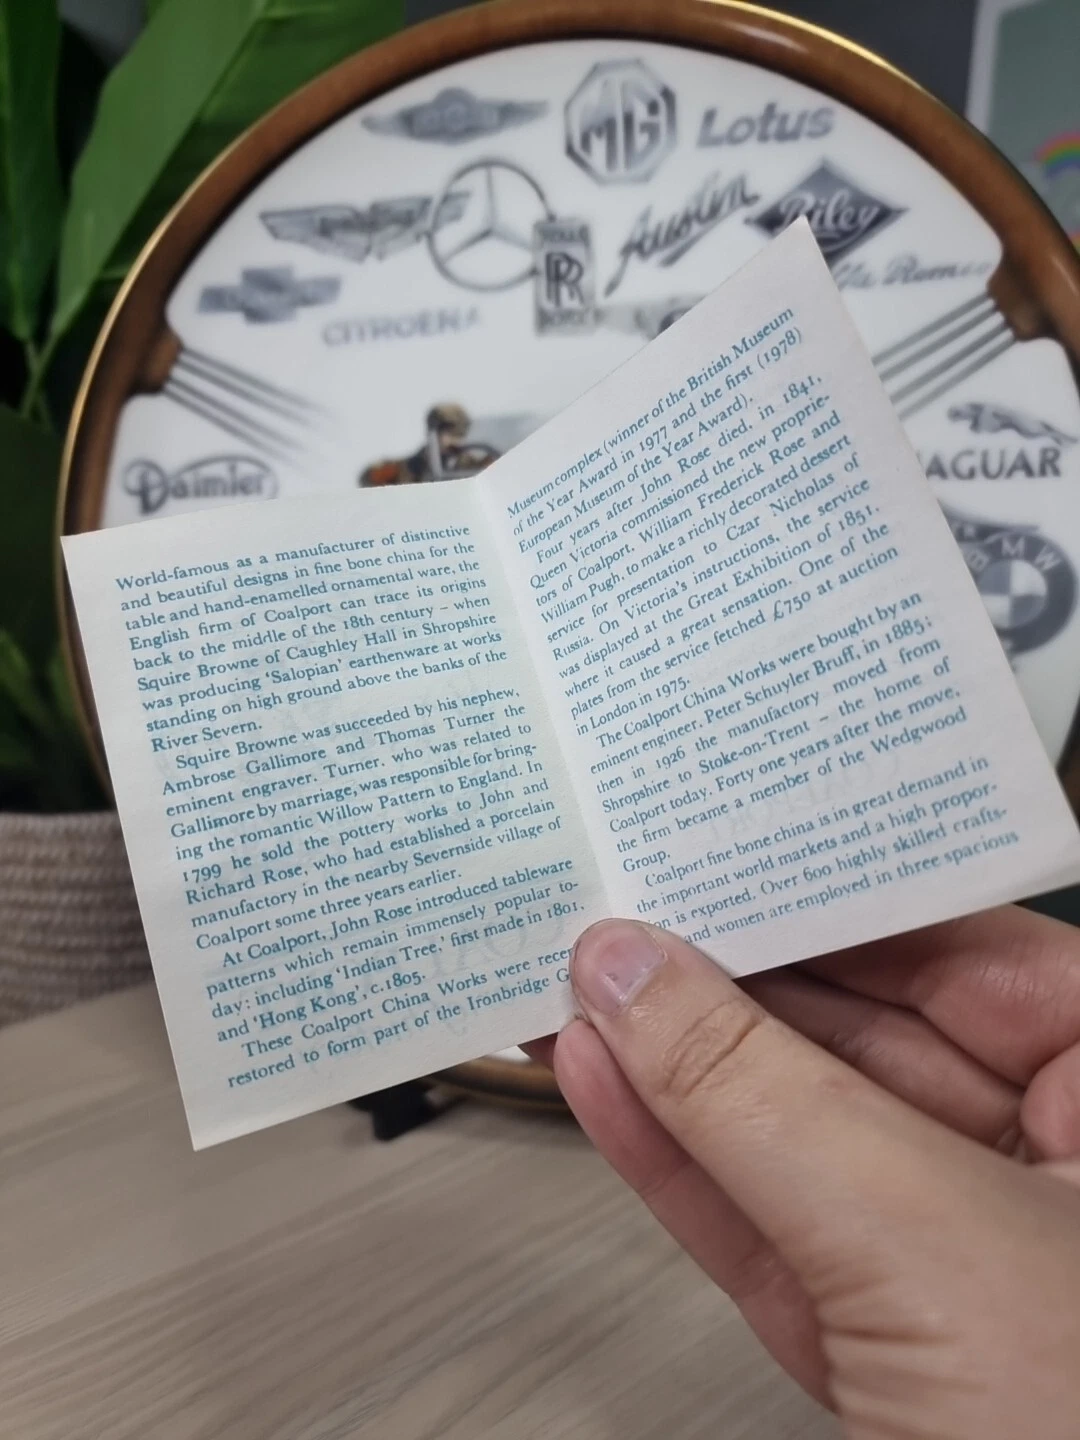 MG
Lotus
Austin
Riley
RR
CITROËN
Daimler
JAGUAR
BMW
World-famous as a manufacturer of distinctive
and beautiful designs in fine bone china for the
table and hand-enamelled ornamental ware, the
English firm of Coalport can trace its origins
back to the middle of the 18th century – when
Squire Browne of Caughley Hall in Shropshire
was producing 'Salopian' earthenware at works
standing on high ground above the banks of the
River Severn.
Squire Browne was succeeded by his nephew,
Ambrose Gallimore and Thomas Turner the
eminent engraver. Turner, who was related to
Gallimore by marriage, was responsible for bring-
ing the romantic Willow Pattern to England. In
1799 he sold the pottery works to John and
Richard Rose, who had established a porcelain
manufactory in the nearby Severnside village of
Coalport some three years earlier.
At Coalport, John Rose introduced tableware
patterns which remain immensely popular to-
day: including 'Indian Tree,' first made in 1801,
and 'Hong Kong', c.1805.
These Coalport China Works were recen
restored to form part of the Ironbridge G
Museum complex (winner of the British Museum
of the Year Award in 1977 and the first (1978)
European Museum of the Year Award).
Four years after John Rose died, in 1841,
Queen Victoria commissioned the new proprie-
tors of Coalport, William Frederick Rose and
William Pugh, to make a richly decorated dessert
service for presentation to Czar Nicholas of
Russia. On Victoria's instructions, the service
was displayed at the Great Exhibition of 1851,
where it caused a great sensation. One of the
plates from the service fetched £750 at auction
in London in 1975.
The Coalport China Works were bought by an
eminent engineer, Peter Schuyler Bruff, in 1885;
then in 1926 the manufactory moved from
Shropshire to Stoke-on-Trent – the home of
Coalport today. Forty one years after the move,
the firm became a member of the Wedgwood
Group.
Coalport fine bone china is in great demand in
the important world markets and a high propor-
on is exported. Over 600 highly skilled crafts-
and women are employed in three spacious